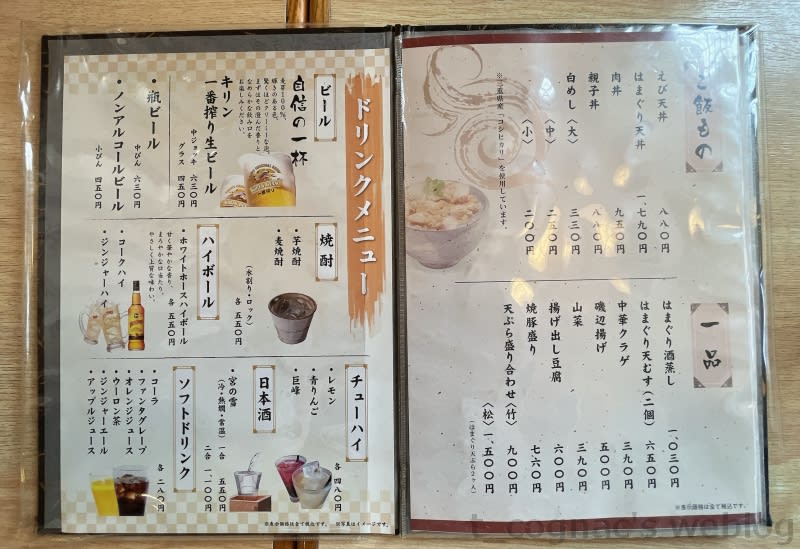 ご飯もの
えび天丼 八八〇円
はまぐり天丼 一、七九〇円
肉丼 九五〇円
親子丼 八八〇円
白めし〈大〉 三三〇円
〈中〉 二五〇円
〈小〉 二〇〇円
※三重県産「コシヒカリ」を使用しています。
一品
はまぐり酒蒸し 一、〇三〇円
はまぐり天むす〈二個〉 六五〇円
中華クラゲ 三九〇円
磯辺揚げ 五〇〇円
山菜 三九〇円
揚げ出し豆腐 六〇〇円
焼豚盛り 七六〇円
天ぷら盛り合わせ〈竹〉 九〇〇円
〈松〉 一、五〇〇円
(はまぐり天ぷら2ケ入)
※表示価格は全て税込です。
ドリンクメニュー
ビール
自信の一杯
麦芽100%。
輝きのある色、
驚くほどクリーミーな泡。
まずはその澄んだ香りと
なめらかな飲み口を
お楽しみください。
キリン
一番搾り生ビール
中ジョッキ 六三〇円
グラス 四五〇円
・瓶ビール
中びん 六三〇円
・ノンアルコールビール
小びん 四五〇円
焼酎
・芋焼酎
・麦焼酎
(水割り・ロック)
各 五五〇円
ハイボール
・ホワイトホースハイボール
各 五五〇円
甘く華やかな香り、
まろやかな口当たり。
やさしく上質な味わい。
・コークハイ
・ジンジャーハイ
チューハイ
・レモン
・青りんご
・巨峰
各 四八〇円
日本酒
・宮の雪
(冷・熱燗・常温)
一合 五五〇円
二合 一、一〇〇円
ソフトドリンク
・コーラ
・ファンタグレープ
・オレンジジュース
・ウーロン茶
・ジンジャーエール
・アップルジュース
各 二八〇円
※表示価格は全て税込です。 ※写真はイメージです。
t-cognac's weblog